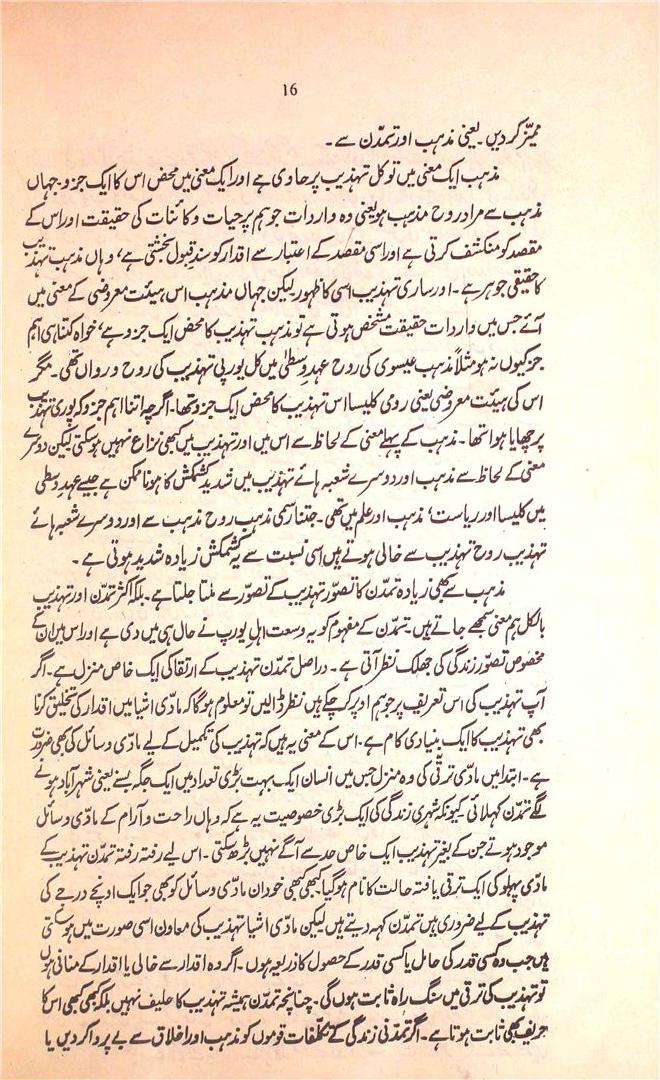 16
ممیّز کر دیں۔ یعنی مذہب اور تمدّن سے۔
مذہب ایک معنی میں تو کل تہذیب پر حاوی ہے اور ایک معنی میں محض اس کا ایک جزو۔ جہاں
مذہب سے مراد روح مذہب ہو یعنی وہ واردات جو ہم پر حیات و کائنات کی حقیقت اور اس کے
مقصد کو منکشف کرتی ہے اور اسی مقصد کے اعتبار سے اقدار کو سندِ قبول بخشتی ہے، وہاں مذہب تہذیب
کا حقیقی جوہر ہے۔ اور ساری تہذیب اسی کا ظہور لیکن جہاں مذہب اس ہیئت معروضی کے معنی میں
آئے جس میں واردات حقیقت مشخص ہوتی ہے تو مذہب تہذیب کا محض ایک جزو ہے، خواہ کتنا ہی اہم
جز کیوں نہ ہو مثلاً مذہب عیسوی کی روح عہد وسطیٰ میں کل یورپی تہذیب کی روح و رواں تھی۔ مگر
اس کی ہیئت معروضی یعنی رومی کلیسا اس تہذیب کا محض ایک جزو تھا۔ اگرچہ اتنا اہم جزو کہ پوری تہذیب
پر چھایا ہوا تھا۔ مذہب کے پہلے معنی کے لحاظ سے اس میں اور تہذیب میں کبھی نزاع نہیں ہو سکتی لیکن دوسرے
معنی کے لحاظ سے مذہب اور دوسرے شعبہ ہائے تہذیب میں شدید کشمکش کا ہونا ممکن ہے جیسے عہد وسطی
میں کلیسا اور ریاست، مذہب اور علم میں تھی۔ جتنا رسمی مذہب روح مذہب سے اور دوسرے شعبہ ہائے
تہذیب روح تہذیب سے خالی ہوتے ہیں اسی نسبت سے یہ کشمکش زیادہ شدید ہوتی ہے۔
مذہب سے بھی زیادہ تمدّن کا تصوّر تہذیب کے تصوّر سے ملتا جلتا ہے۔ بلکہ اکثر تمدّن اور تہذیب
بالکل ہم معنی سمجھے جاتے ہیں۔ تمدّن کے مفہوم کو یہ وسعت اہل یورپ نے حال ہی میں دی ہے اور اس میں ان کے
مخصوص تصوّر زندگی کی جھلک نظر آتی ہے۔ دراصل تمدّن تہذیب کے ارتقا کی ایک خاص منزل ہے۔ اگر
آپ تہذیب کی اس تعریف پر جو ہم اوپر کر چکے ہیں نظر ڈالیں تو معلوم ہوگا کہ مادّی اشیا میں اقدار کی تخلیق کرنا
بھی تہذیب کا ایک بنیادی کام ہے۔ اس کے معنی یہ ہیں کہ تہذیب کی تکمیل کے لیے مادّی وسائل کی بھی ضرورت
ہے۔ ابتدا میں مادّی ترقّی کی وہ منزل جس میں انسان ایک بہت بڑی تعداد میں ایک جگہ بسنے یعنی شہر آباد ہونے
لگے تمدّن کہلائی کیونکہ شہری زندگی کی ایک بڑی خصوصیت یہ ہے کہ وہاں راحت و آرام کے مادّی وسائل
موجود ہوتے جن کے بغیر تہذیب ایک خاص حد سے آگے نہیں بڑھ سکتی۔ اس لیے رفتہ رفتہ تمدّن تہذیب کے
مادّی پہلو کی ایک ترقی یافتہ حالت کا نام ہوگیا کبھی کبھی خود ان مادّی وسائل کو بھی جو ایک اونچے درجے کی
تہذیب کے لیے ضروری ہیں تمدّن کہہ دیتے ہیں لیکن مادّی اشیا تہذیب کی معاون اسی صورت میں ہو سکتی
ہیں جب وہ کسی قدر کی حامل یا کسی قدر کے حصول کا ذریعہ ہوں۔ اگر وہ اقدار سے خالی یا اقدار کے منافی ہوں
تو تہذیب کی ترقی میں سنگ راہ ثابت ہوں گی۔ چنانچہ تمدّن ہمیشہ تہذیب کا حلیف نہیں بلکہ کبھی کبھی اس کا
حریف بھی ثابت ہوتا ہے۔ اگر تمدّنی زندگی کے تکلّفات قوموں کو مذہب اور اخلاق سے بے پروا کر دیں یا